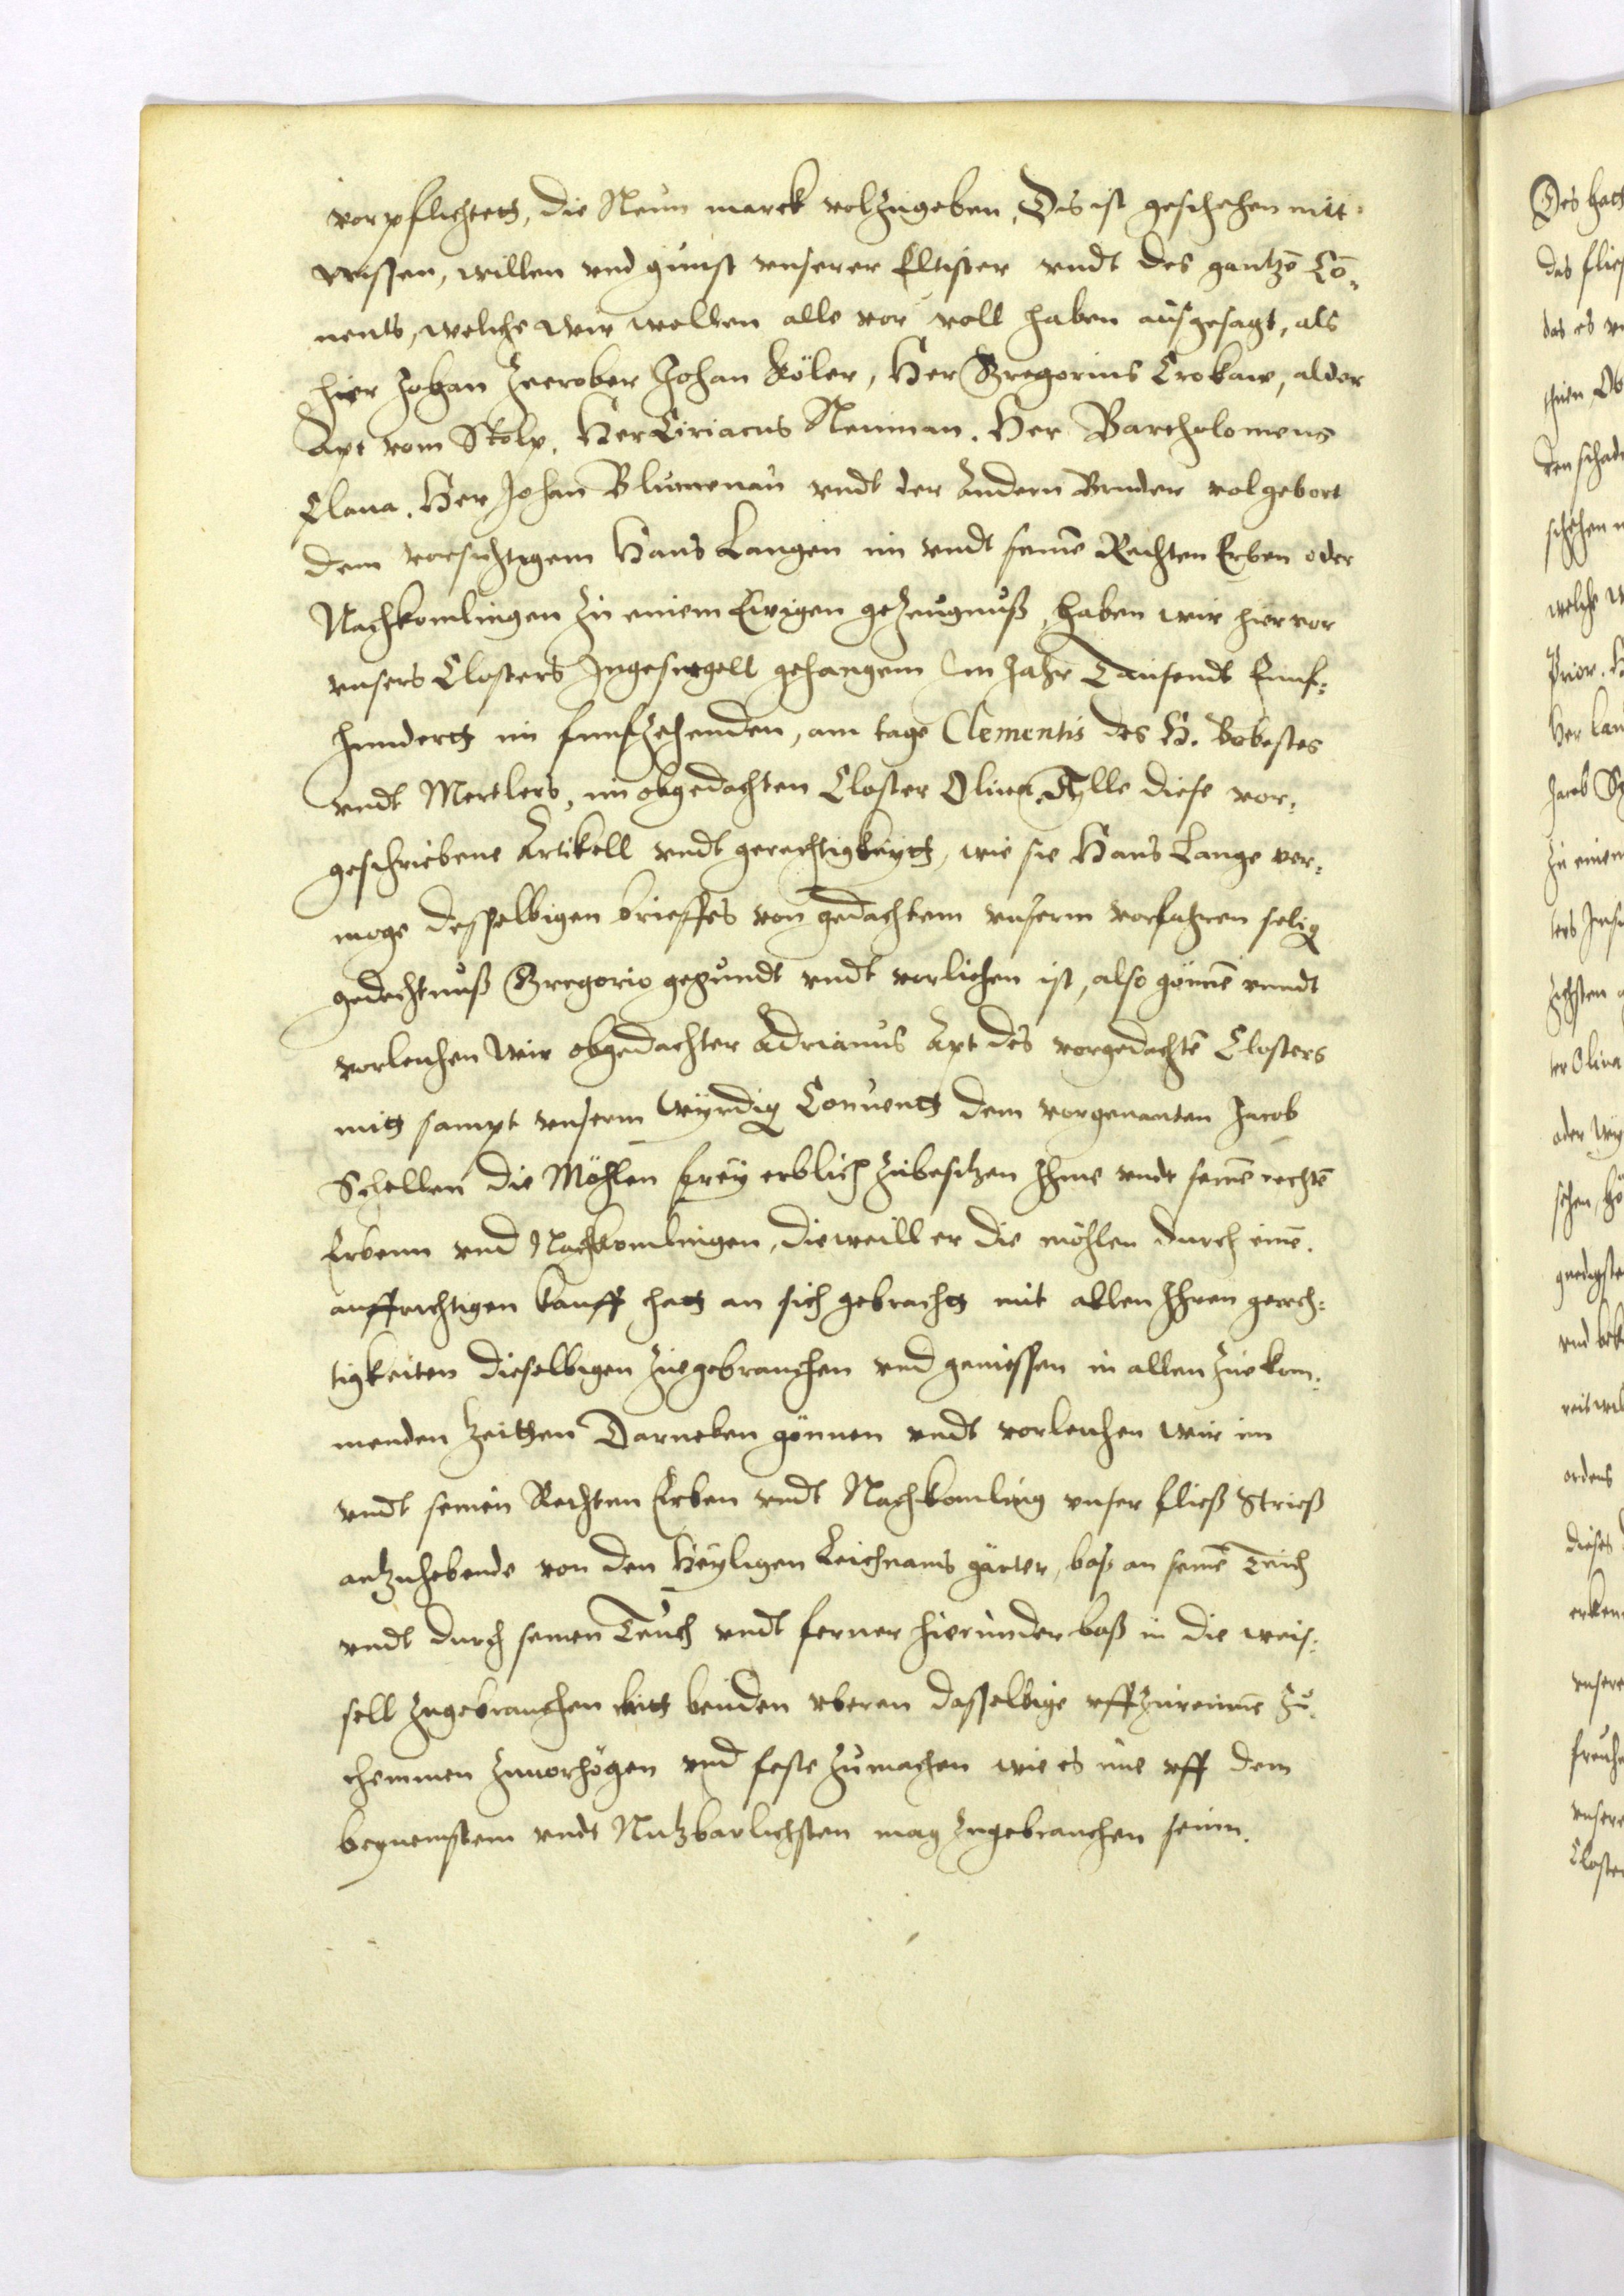 vorpflichtett, die Neun marck volzugeben, Dis ist geschehen mit
wissen, willen vnd gunst vnserer Eltister vndt des gantzē Cō¬
uents, welche wir wollen alle vor voll haben ausgesagt, als
hier Johan Johan Köler, Her Gregorius Crokaw, alder
Apt vom Stolp, Her Ciriacus Neuman, Her Bartholomeus
Clana, Her Johan Blumenau vndt der andern Bruder volgebort
dem vorsichtigem Hans Langen im vndt seinē Rechten Erben oder
Nachkomlingen zu einem Ewigen gezeugnuß, haben wir hier vor
vnsers Closters Ingesiegell gehangenn Im Jahr Tausendt Funf¬
hundertt im funfzehenden, am tage Clementis des H. Bobestes
vndt Mertlers, im obgedachten Closter Oliua, Alle diese vor¬
geschriebene Artikell vndt gerechtigkeytt, wie sie Hans Lange ver¬
moge desselbigen brieffes von gedachtem vnserm vorfahren selig
gedechtnuß Gregorio gegundt vndt vorliehen ist, also gönnē vnndt
vorleichen Wir obgedachter Adrianus Apt des vorgedachtē Closters
mitt sampt vnserm Wyrdig Conuentt dem vorgenanten Jacob
Schellen die Möhlen frey erblich zubesitzen Ihme vndt seinē rechtē
Erbenn vnd Nachkomlingen, dieweill er die möhlen durch einē
auffrichtigen kauff hatt an sich gebracht mit allen Ihren gerech¬
tigkeiten dieselbigen zuegebrauchen vnd geniessen in allen zuekom¬
menden Zeitten Darneben gönnen vndt vorleichen wir im
vndt seinen Rechten Erben vndt Nachkomling vnser fließ Strieß
antzuhebende von den Heyligen Leichnams gärten, baß an seinē Teich
vndt durch seinen Teuch vndt ferner hierunder baß in die weis¬
sell zugebrauchen mitt beiden vberen dasselbige vffzureumē zu
themmen zuuorhögen vnd feste zumachen wie es ime vff dem
bequemsten vndt Nutzbarlichsten mag zugebrauchen seinn.